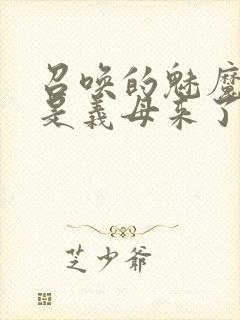 召唤的魅魔
是义母来了
芝少爷